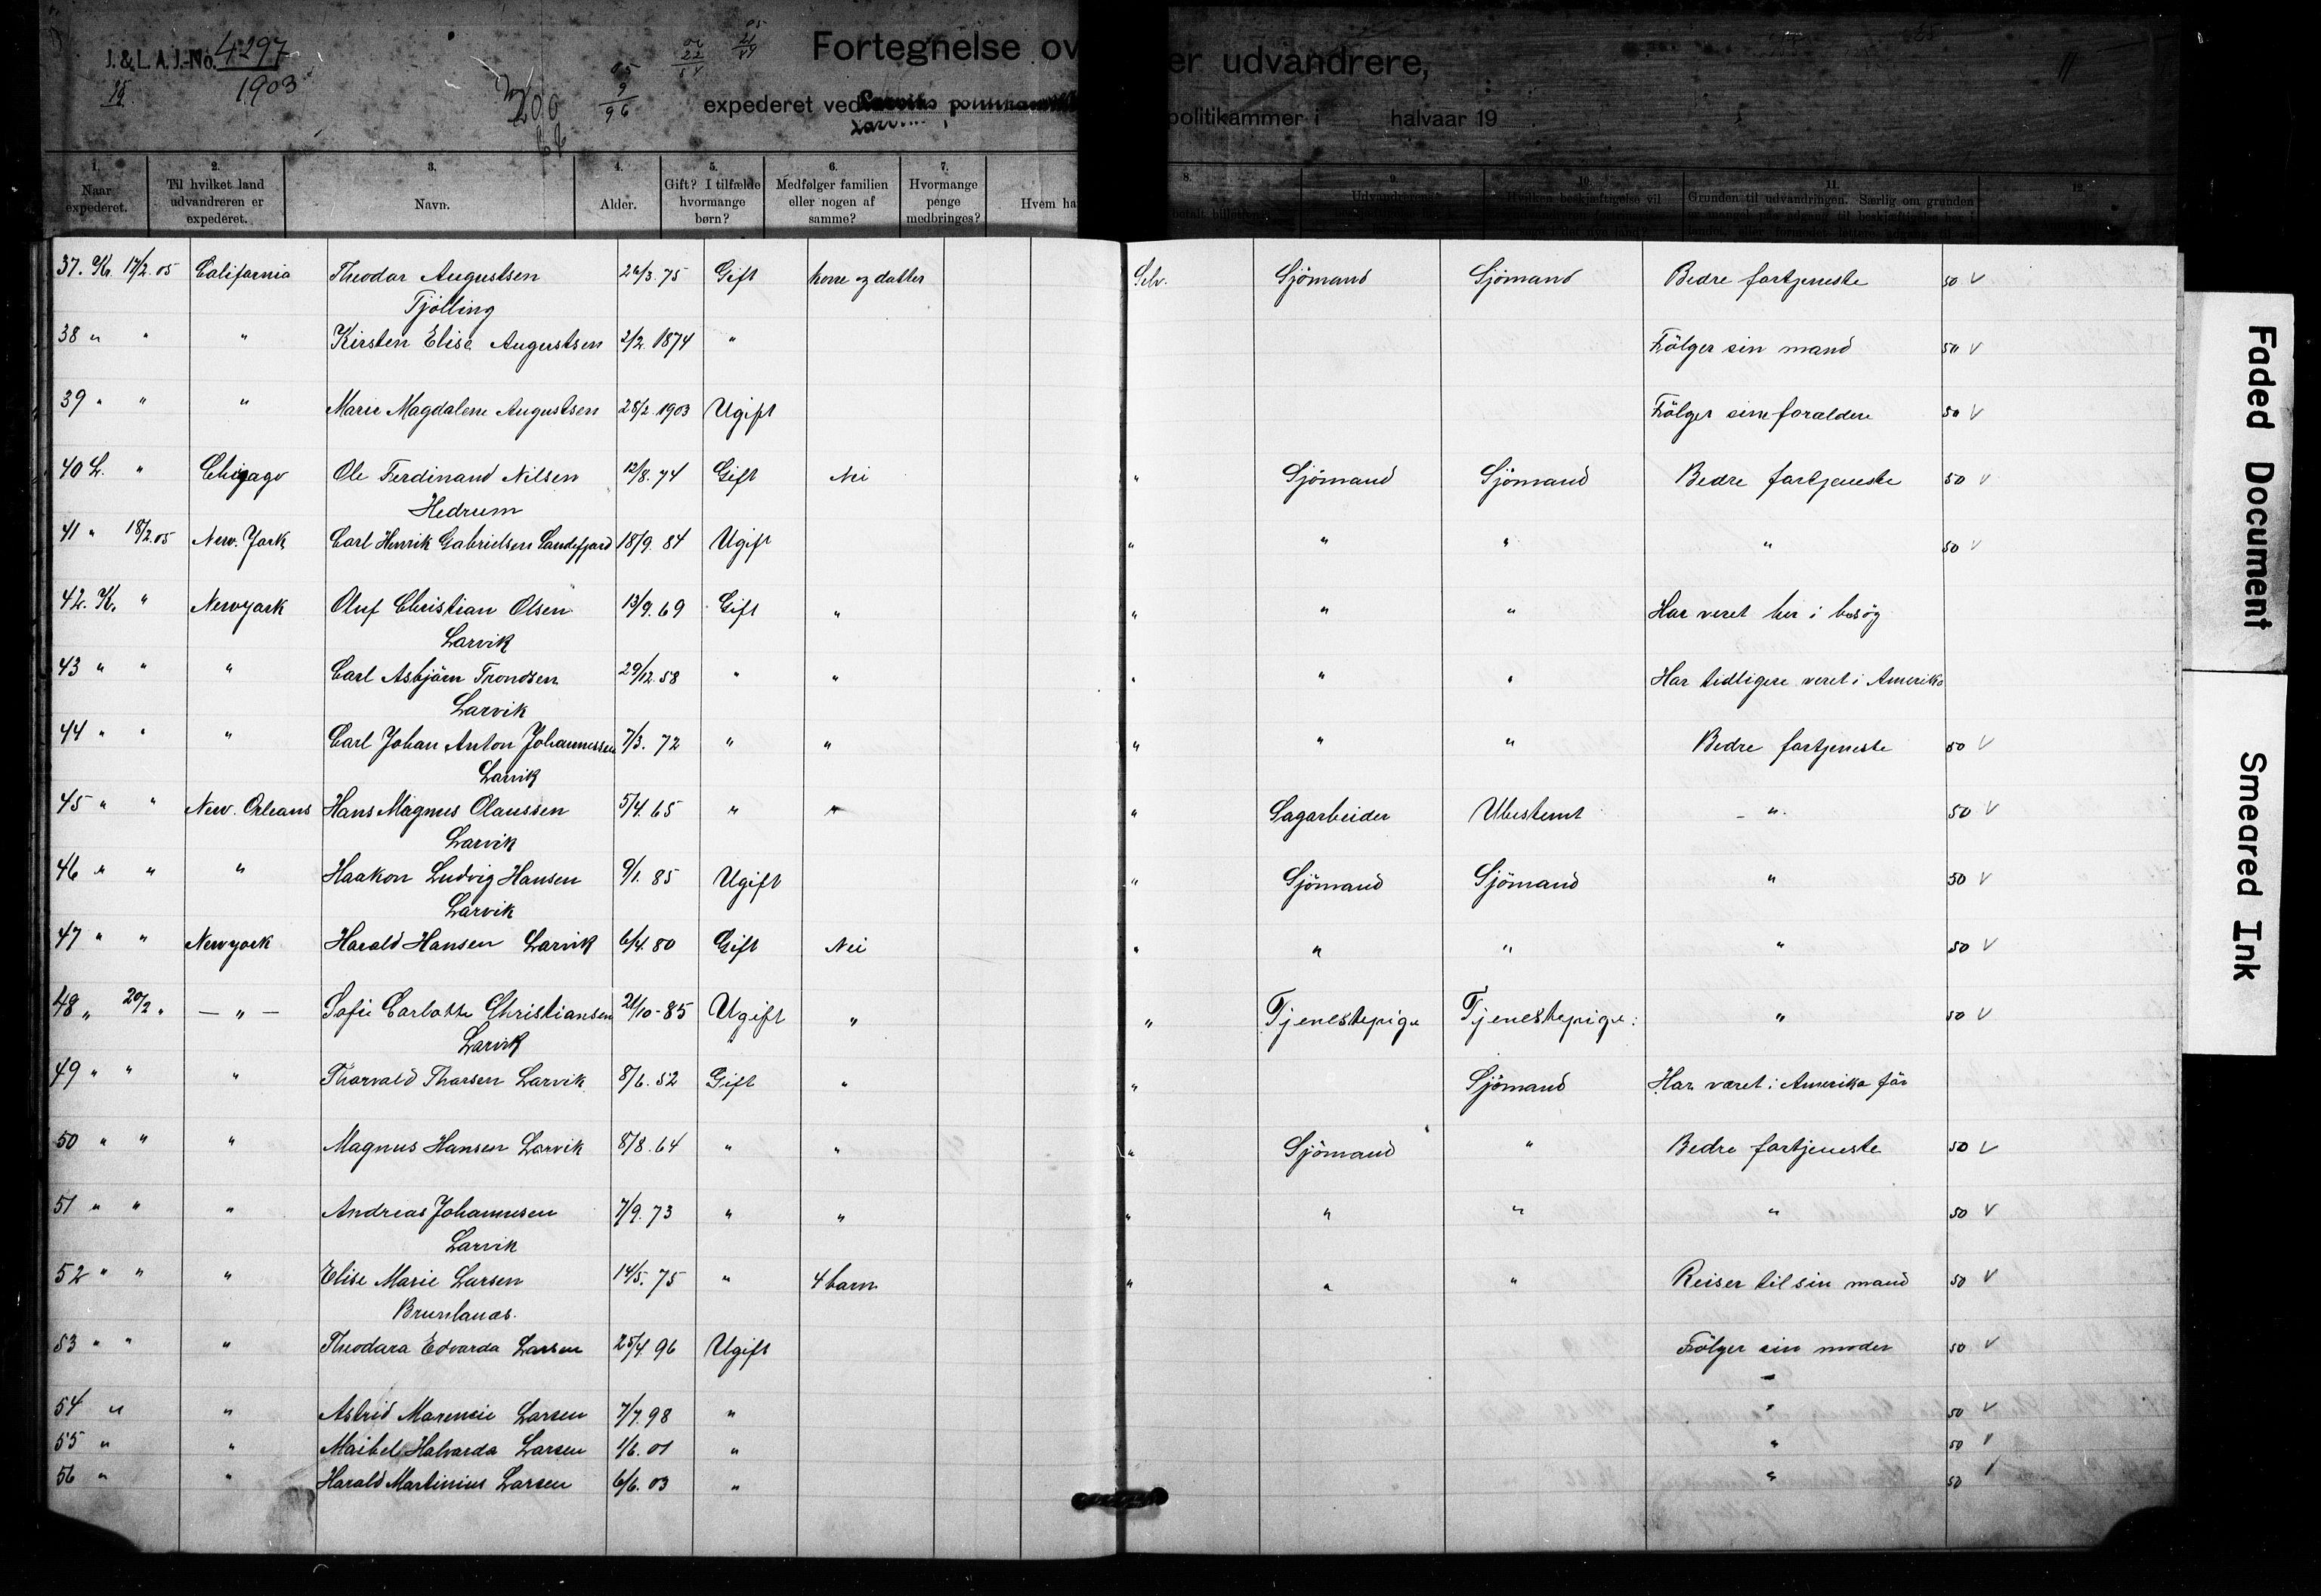 J. & L. A. J.-No. 4297
1903
Fortegnelse over udvandrere,
expederet ved politikammer i halvaar 19
1. Naar expederet.
2. Til hvilket land udvandreren er expederet.
3. Navn.
4. Alder.
5. Gift? I tilfælde hvormange børn?
6. Medfølger familien eller nogen af samme?
7. Hvormange penge medbringes?
8. Hvem ha betalt
9. Udvandrerens
10. Hvilken beskjæftigelse vil
11. Grunden til udvandringen. Særlig om grunden
12.
37. Kr. 17/2.05 California Theodor Augustsen 26/3.75 Gift kone og datter Selv. Sjömand Sjömand Bedre fortjeneste 50 V
Tjölling
38 " " " Kirsten Elise Augustsen 2/2.1874 " Fölger sin mand 50 V
39 " " " Marie Magdalene Augustsen 28/2.1903 Ugift Fölger sine foraldere 50 V
40 L. " Chicago Ole Ferdinand Nilsen 12/8.74 Gift Nei " Sjömand Sjömand Bedre fortjeneste 50 V
Hedrum
41 " 18/2.05 New. York Carl Henrik Gabrielsen Sandefjord 18/9.84 Ugift " " " " 50 V
42. K. " Newyork Oluf Christian Olsen 13/9.69 Gift " " " " Har veret her i besög
Larvik
43 " " " Carl Asbjörn Trondsen 29/12.58 " " " " " Har tidligere veret i Amerika
Larvik
44 " " " Carl Johan Anton Johannessen 7/3.72 " " " " " Bedre fortjeneste 50 V
Larvik
45 " " New. Orleans Hans Magnus Olaussen 5/4.65 " " " Sagarbeider Ubestemt - " 50 V
Larvik
46 " " " Haakon Ludvig Hansen 9/1.85 Ugift " Sjömand Sjömand " 50 V
Larvik
47 " " Newyork Harald Hansen Larvik 6/4.80 Gift Nei " " " " 50 V
48 " 20/2 " — " — Sofie Carlotte Christiansen 21/10-85 Ugift " " Tjenestepige Tjenestepige: " 50 V
Larvik
49 " " " Thorvald Thorsen Larvik 8/6.52 Gift " " Sjömand Har været i Amerika för
50 " " " Magnus Hansen Larvik 8/8.64 " " " Sjömand " Bedre fortjeneste 50 V
51 " " " Andreas Johannesen 7/9.73 " " " " " " 50 V
Larvik
52 " " " Elise Marie Larsen 14/5.75 " 4 barn " " " Reiser til sin mand 50 V
Brunlanes.
53 " " " Theodora Edvarda Larsen 25/4.96 Ugift Fölger sin moder 50 V
54 " " Astrid Marensie Larsen 7/7.98 " " 50 V
55 " " Maibel Halvarda Larsen 1/6.01 " " 50 V
56 " " Harald Martinius Larsen 6/6.03 " " 50 V
Faded Document
Smeared Ink